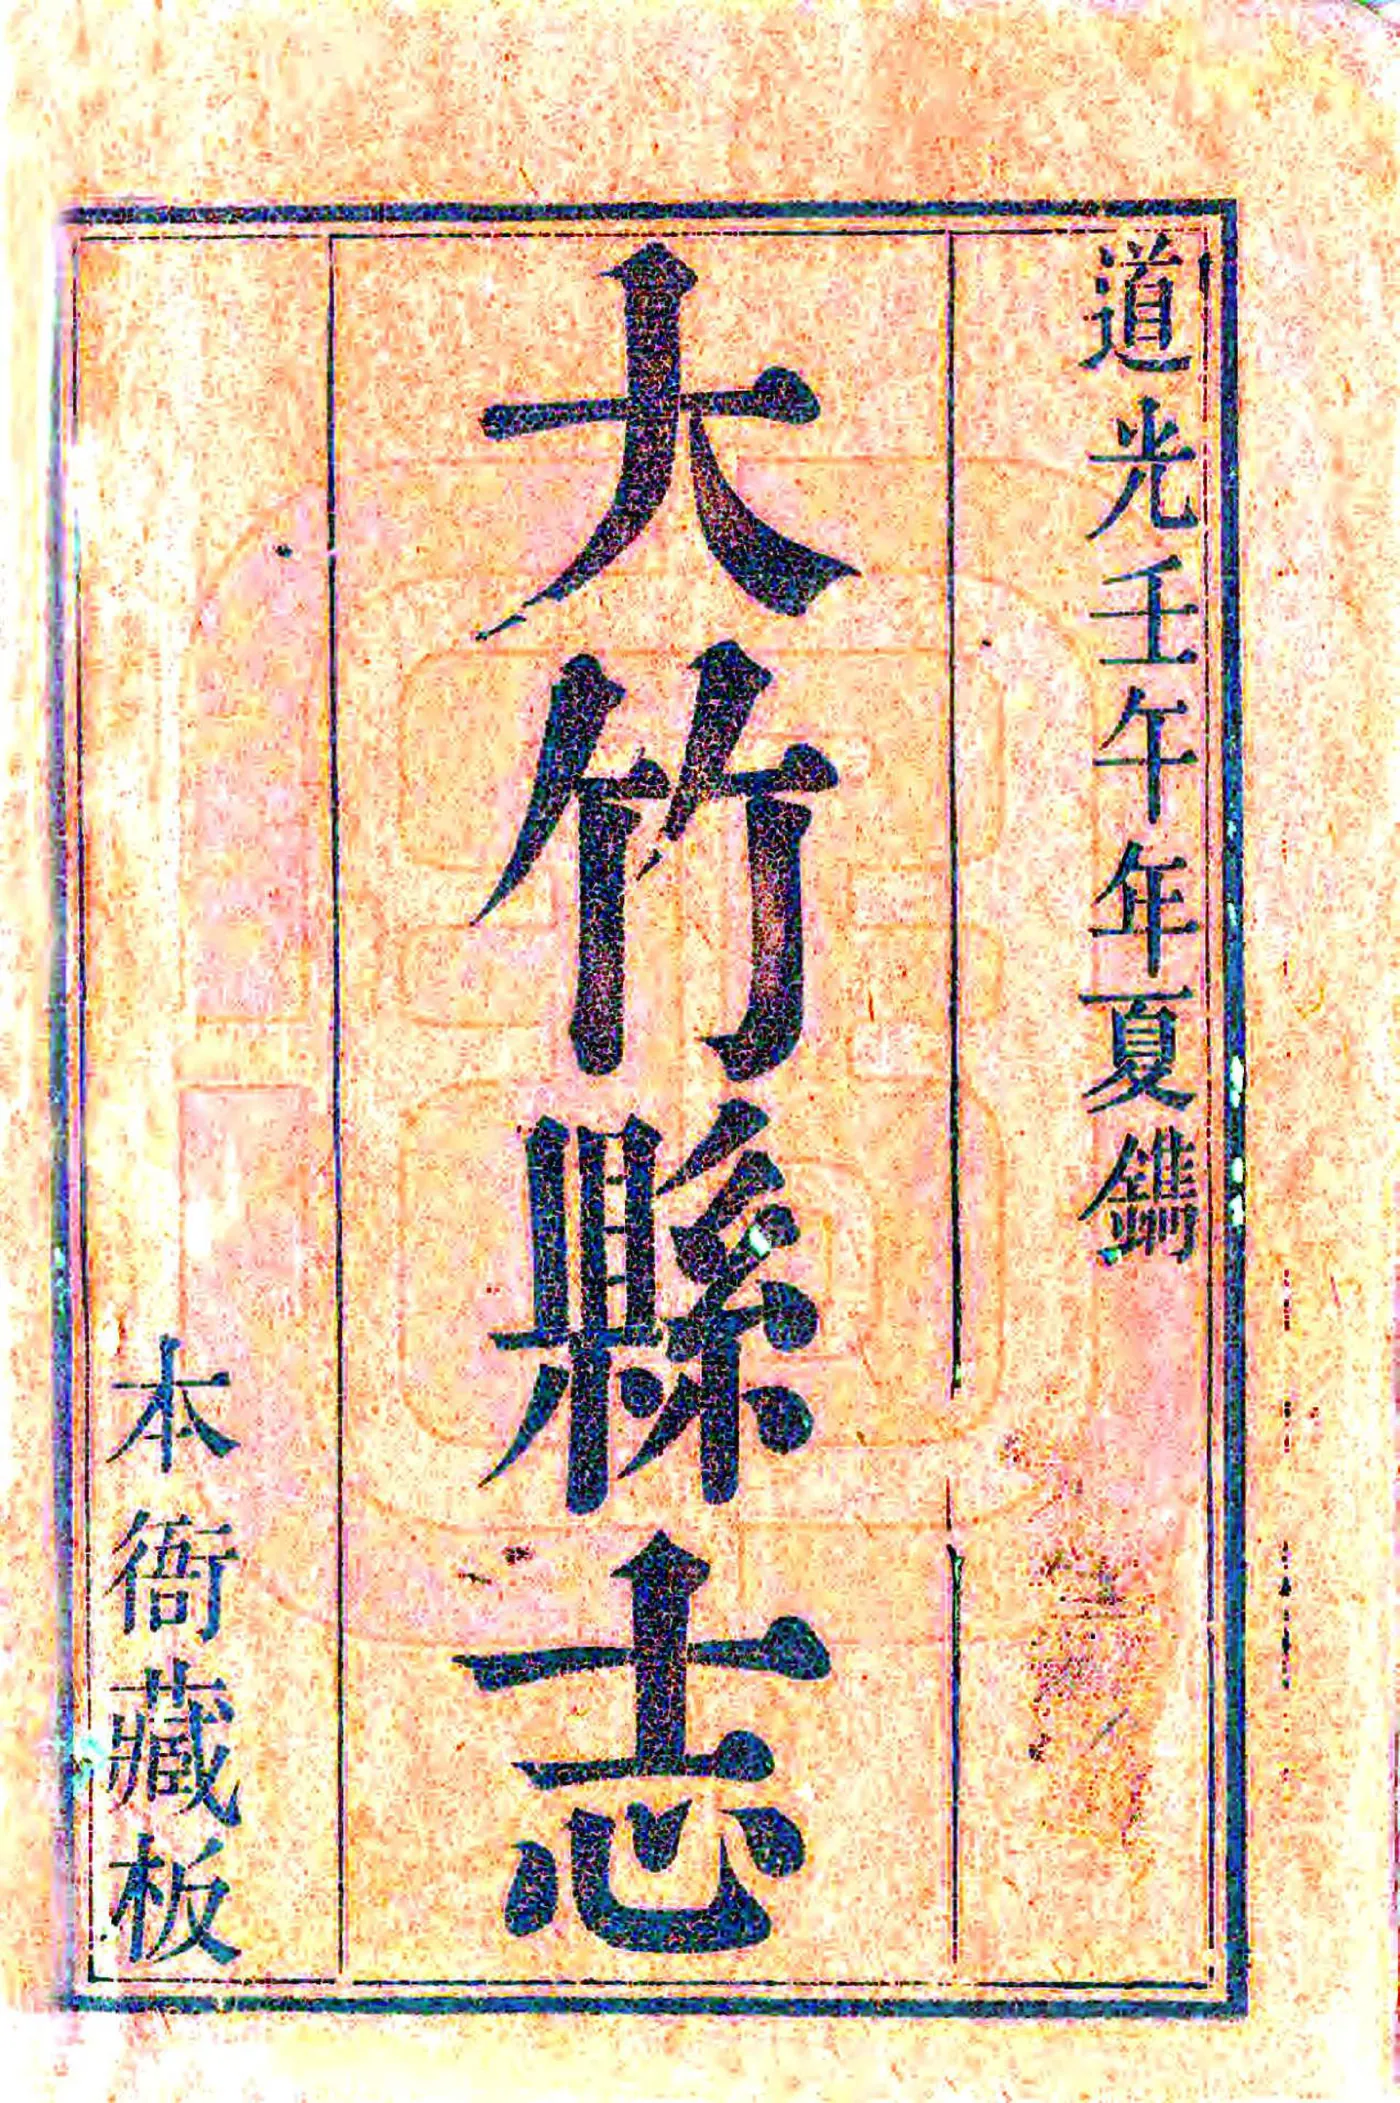 道光壬午年夏鐫
大竹縣志
本衙藏板